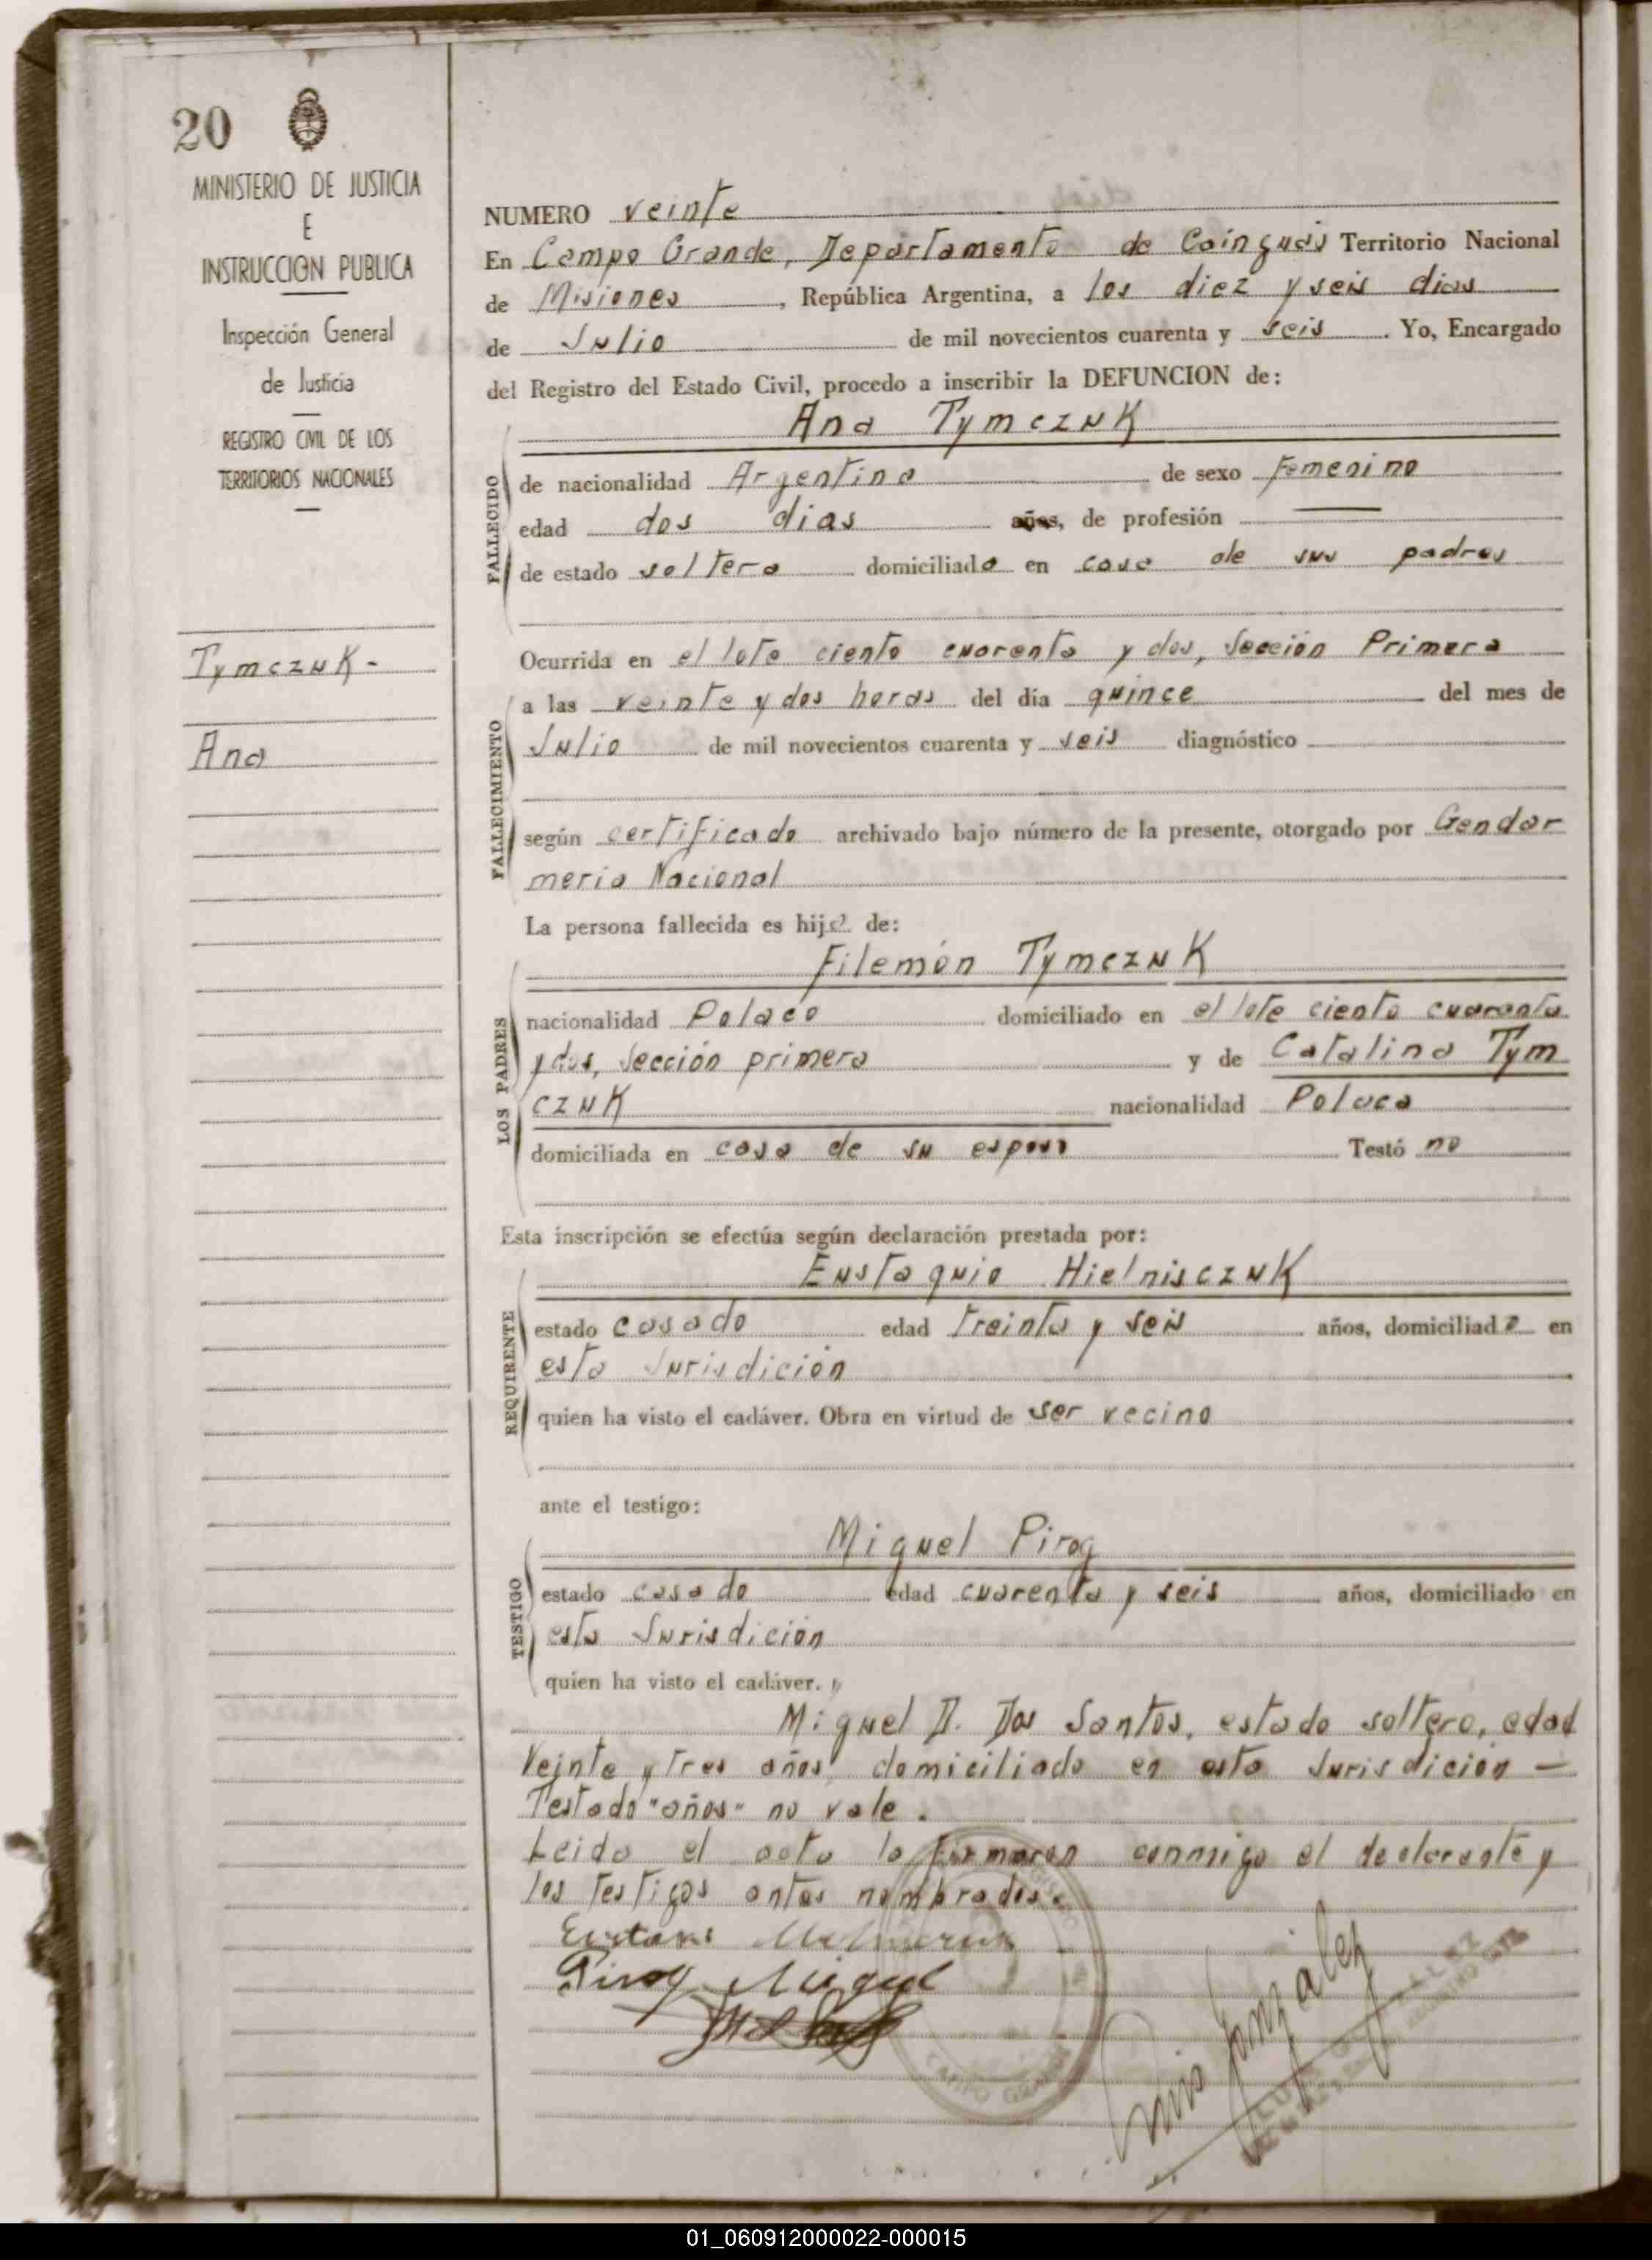 20
MINISTERIO DE JUSTICIA
E
INSTRUCCION PUBLICA
Inspección General
de Justicia
REGISTRO CIVIL DE LOS
TERRITORIOS NACIONALES
Tymczuk-
Ana
NUMERO veinte
En Campo Grande, Departamento de Cainguás Territorio Nacional
de Misiones, República Argentina, a los diez y seis dias
de Julio de mil novecientos cuarenta y seis. Yo, Encargado
del Registro del Estado Civil, procedo a inscribir la DEFUNCION de:
Ana Tymczuk
FALLECIDO
de nacionalidad Argentina de sexo femenino
edad dos dias años, de profesión —
de estado soltera domiciliada en casa de sus padres
Ocurrida en el lote ciento cuarenta y dos, Sección Primera
FALLECIMIENTO
a las veinte y dos horas del día quince del mes de
Julio de mil novecientos cuarenta y seis diagnóstico
según certificado archivado bajo número de la presente, otorgado por Gendar
meria Nacional
La persona fallecida es hija de:
LOS PADRES
Filemón Tymczuk
nacionalidad Polaco domiciliado en el lote ciento cuarenta
y dos, Sección primera y de Catalina Tym
czuk nacionalidad Polaca
domiciliada en casa de su esposo Testó no
Esta inscripción se efectúa según declaración prestada por:
REQUIRENTE
Eustaquio Hielnisczuk
estado casado edad treinta y seis años, domiciliado en
esta Jurisdición
quien ha visto el cadáver. Obra en virtud de ser vecino
ante el testigo:
TESTIGO
Miguel Pirog
estado casado edad cuarenta y seis años, domiciliado en
esta Jurisdición
quien ha visto el cadáver. y
Miguel D. Dos Santos, estado soltero, edad
Veinte y tres años domiciliado en esta Jurisdición —
Testado "años" no vale.
Leida el acta la firmaron conmigo el declarante y
los testigos antes nombrados.
Pirog Miguel
Luis Gonzalez
CAMPO GRANDE
01_060912000022-000015